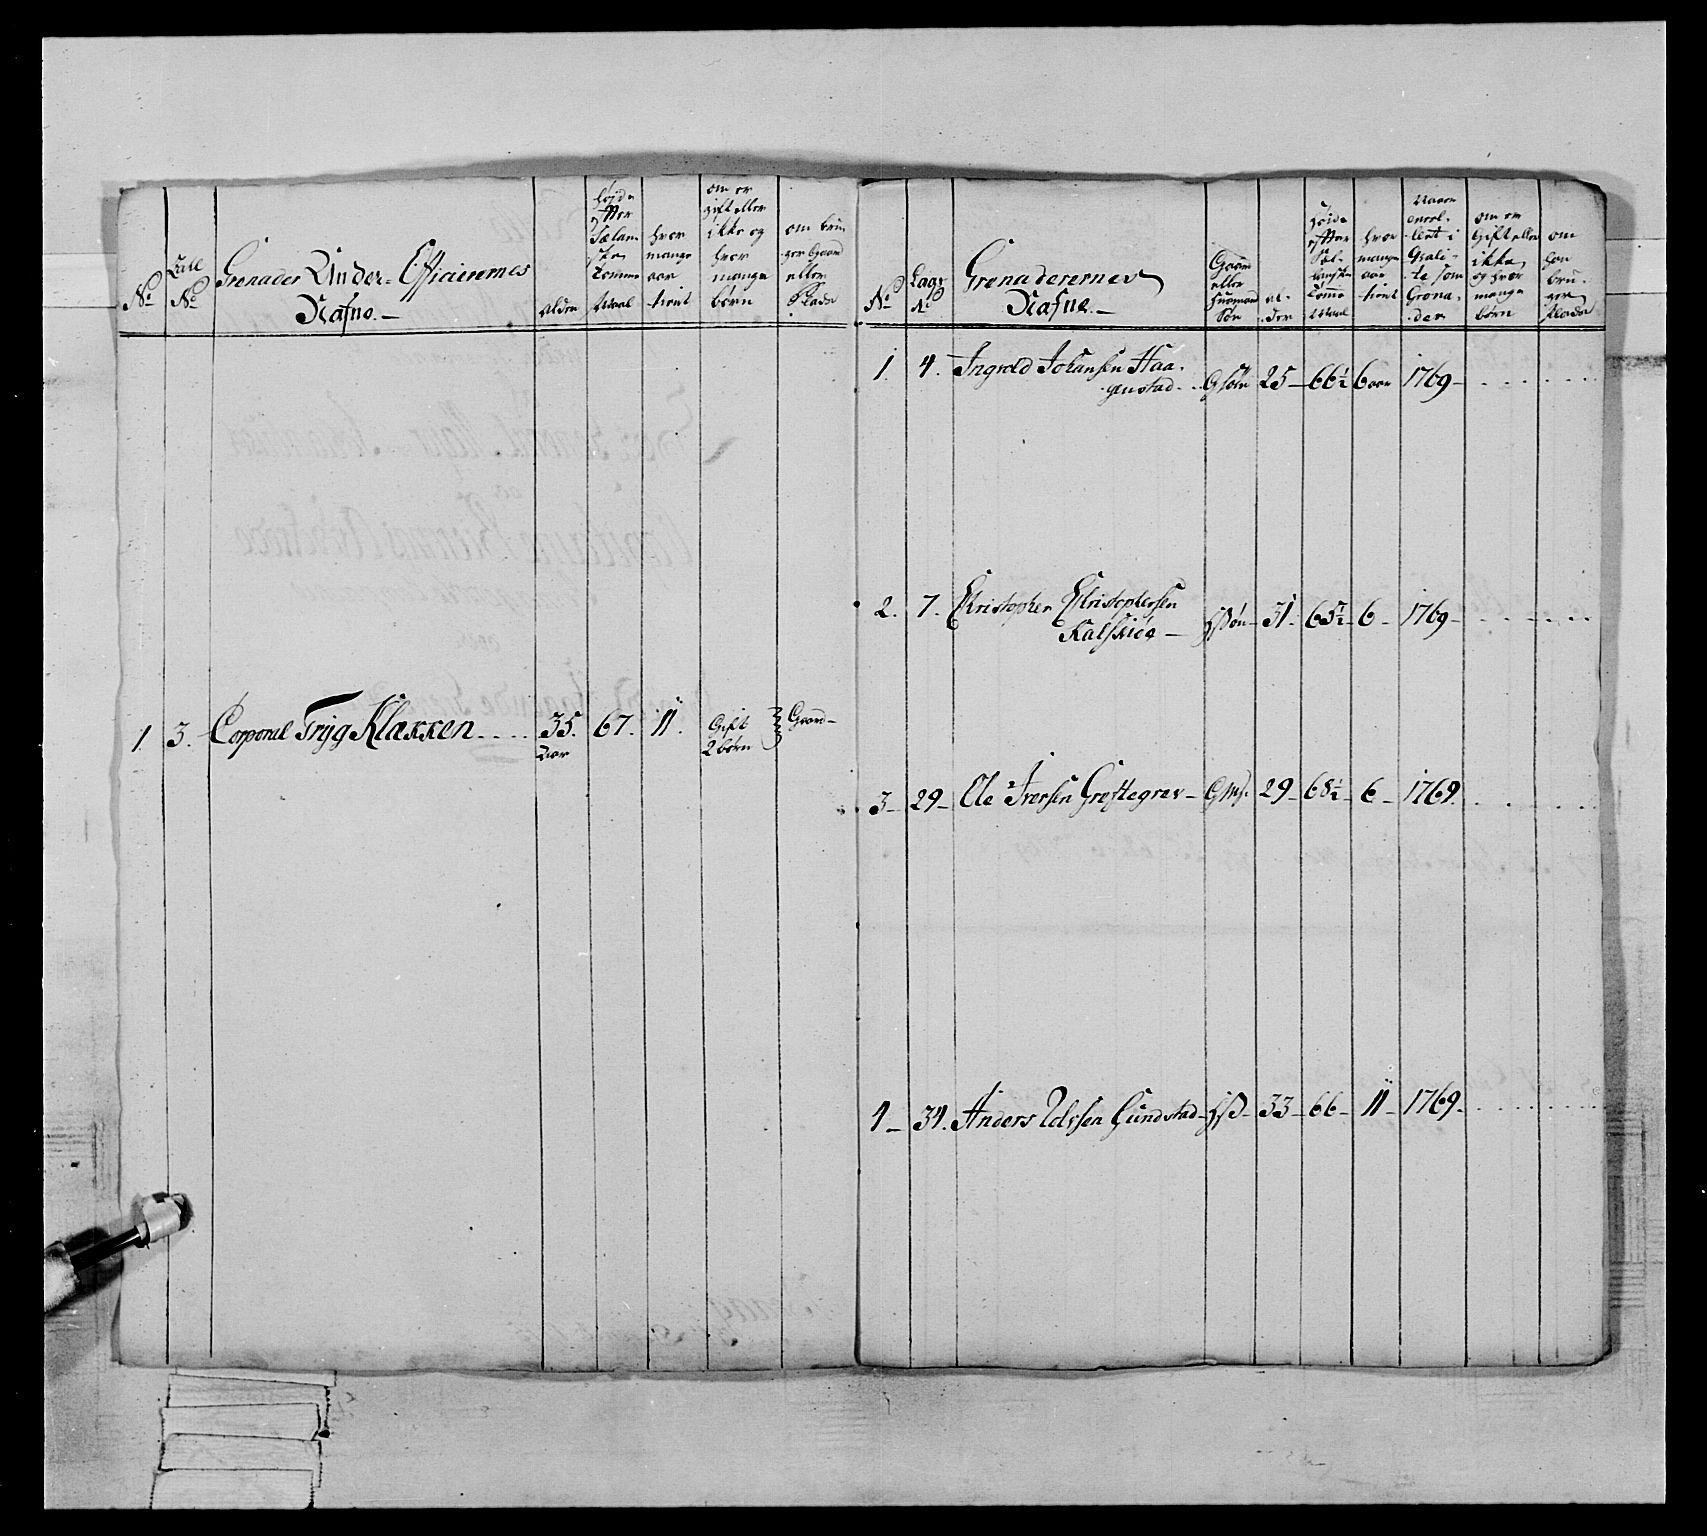 No
No
Grenader Under-Officiernes
Nafne.—
Alder
høyde
efter
Sælan
ske
Tomme
Maal
hvor
mange
aar
tient
om er
gift eller
ikke og
hvor
mange
børn
om bru
ger Gaard
eller
Plads
1. 3. Corporal Tryg Klaxxen..... 35. 67. 11. Gift Gaard—
Aar 2 børn
No
Lægs
No
Grenaderernes
Nafne.—
Gaard
eller
Huusmands
Søn
al-
der
høide
efter
Tomme
Maal
hvor
mange
aar
tient
Naar
enrol-
lert i
Qvali-
te som
Grena-
der
om er
Gift eller
ikke
og hvor
mange
børn
om
han
bru-
ger
Plads
1. 4. Ingvold Johansen Haa-
genstad... G søn 25— 66½ 6 aar 1769—
2. 7. Christopher Christophersen
Kalskiøe— HSøn— 31— 65½— 6— 1769—
3— 29— Ole Iversen Grøttegrav— 29— 68½— 6— 1769.
4— 34. Anders Gundstad— HS— 33— 66— 11— 1769—